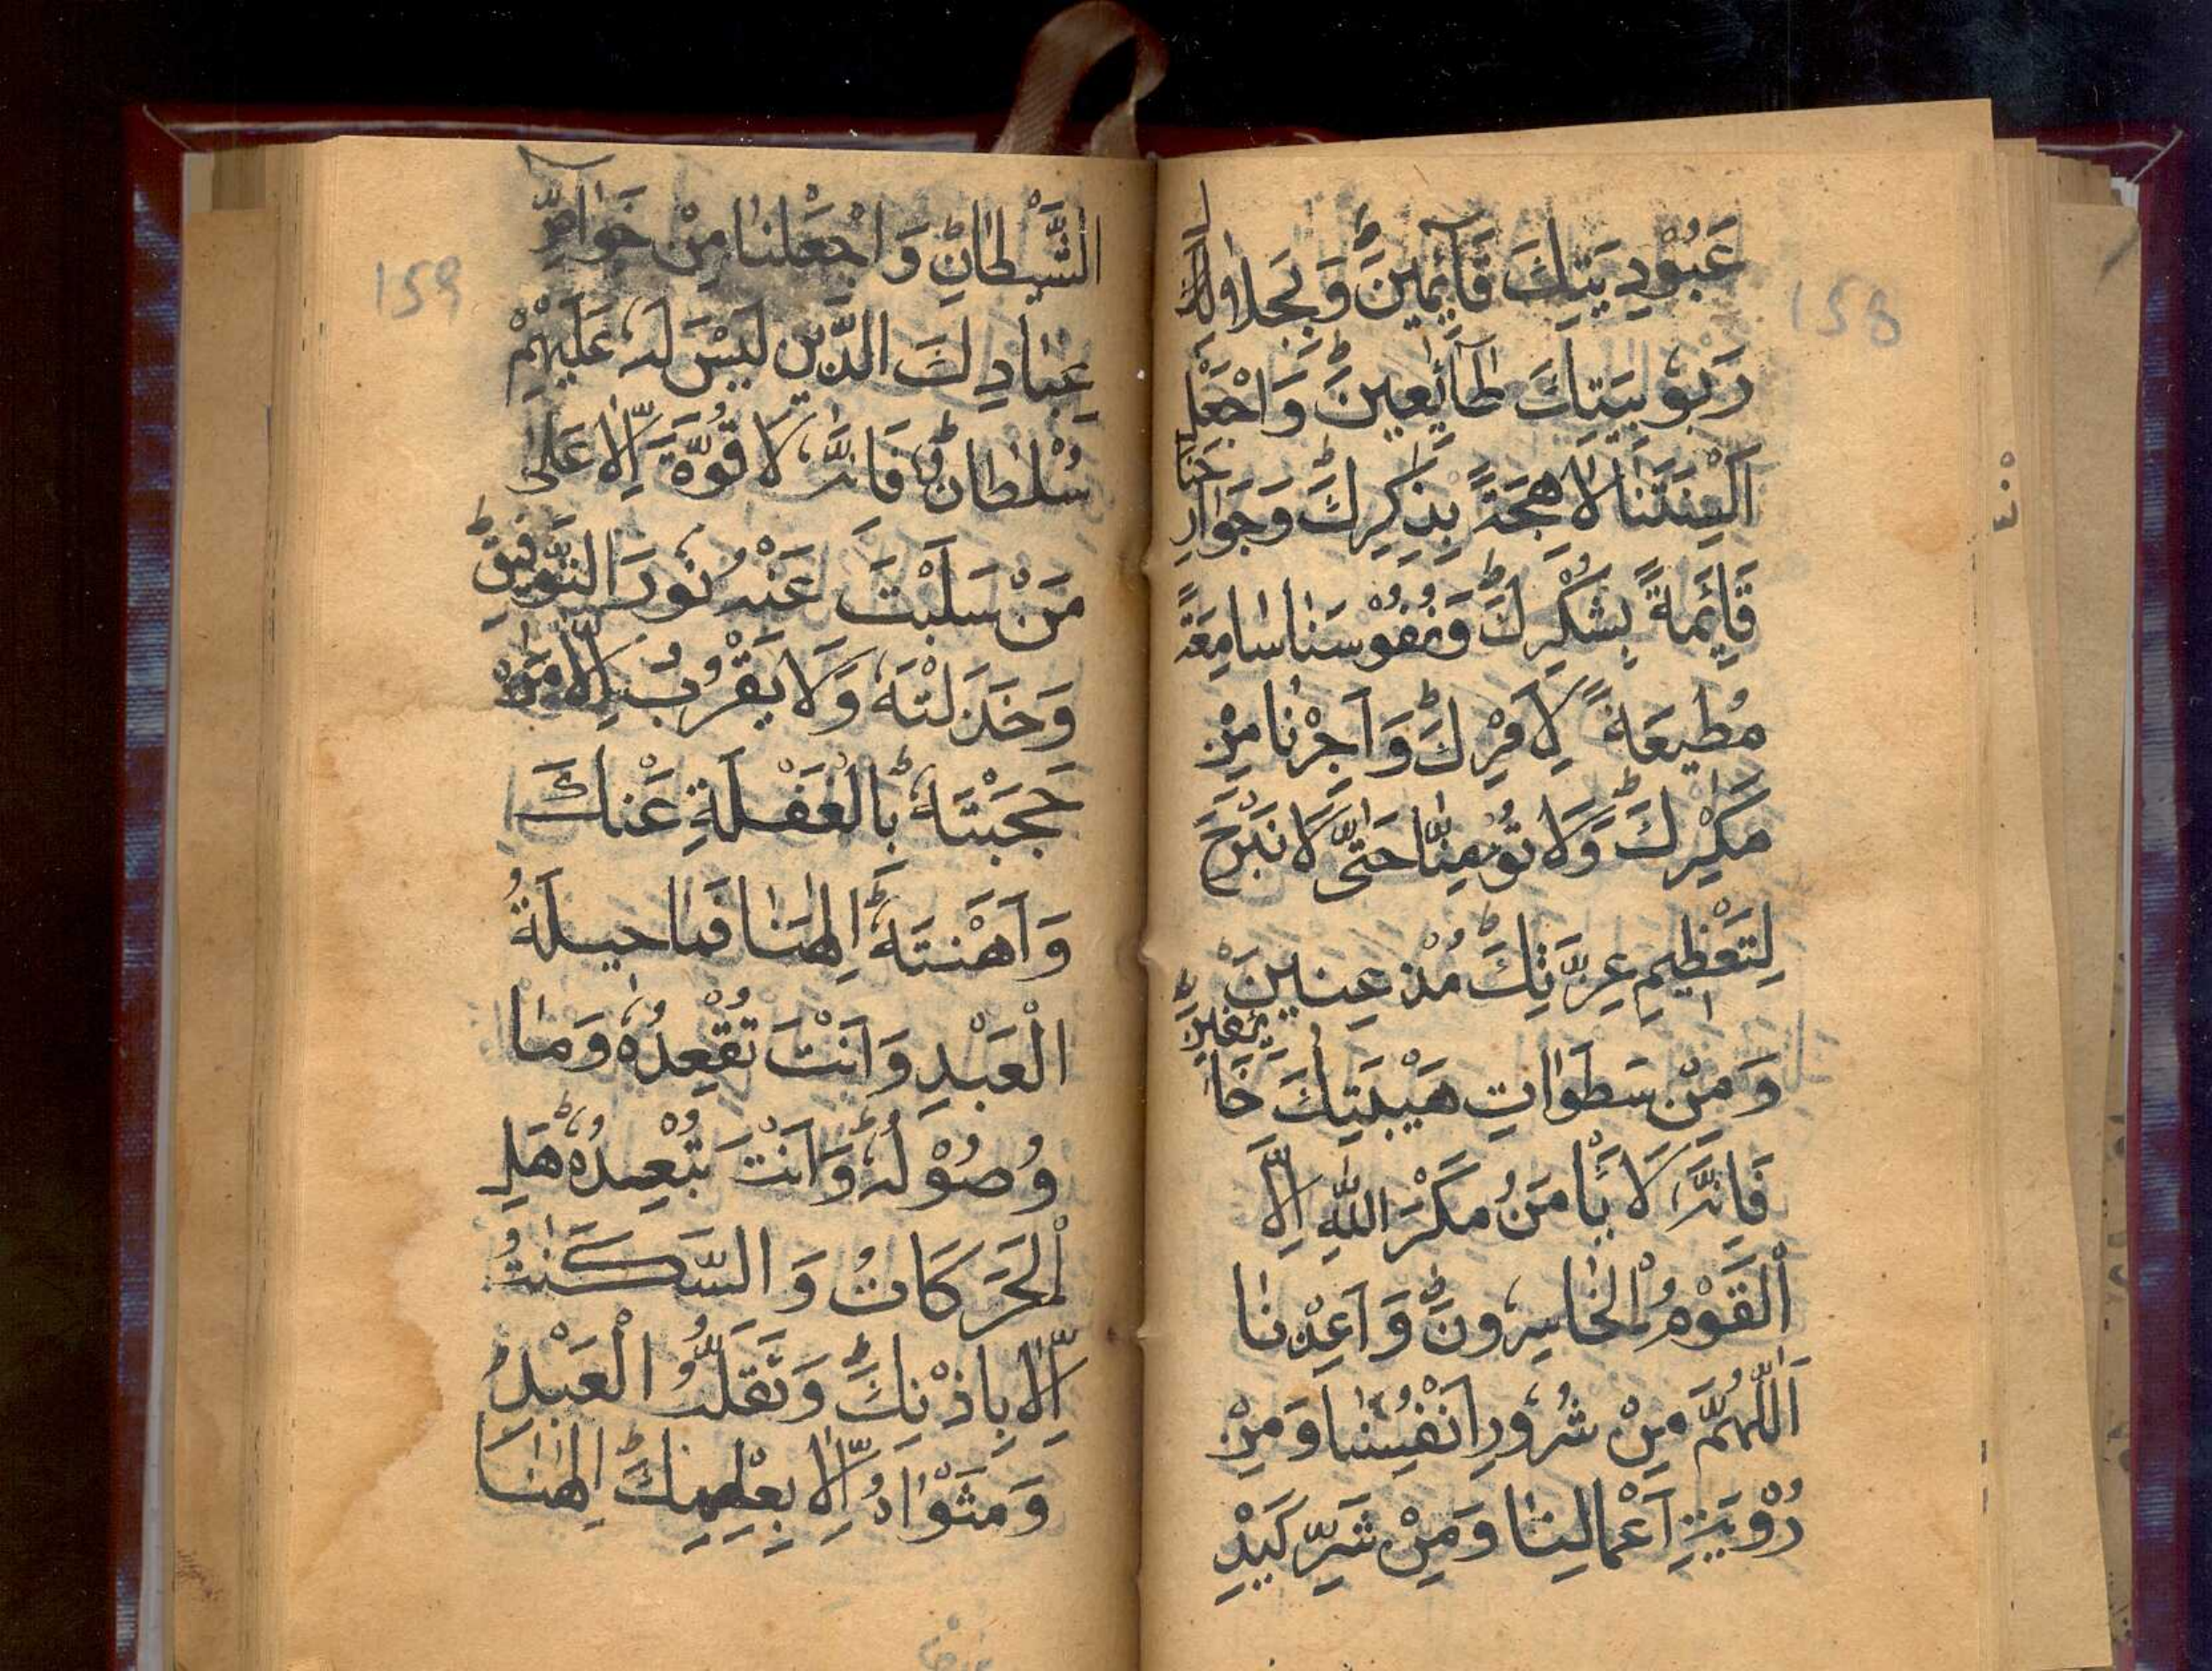 158
عَبُوْدِيَتِكَ قَآئِمِيْنَ وَبِجَلَاوَلَتِ
رَبُوبِيَتِكَ طَآئِعِينَ وَاجْعَل
اَلْسِنَتَنَا لَاهِجَةً بِذِكْرِكَ وَجَوَارِحَنَا
قَائِمَةً بِشُكْرِكَ وَنُفُوْسَنَا سَامِعَةً
مُطِيعَةً لِاَمْرِكَ وَاَجِرْنَا مِنْ
مَكْرِكَ وَلَا تُؤْمِنَّا حَتّٰى لَا نَبْرَحَ
لِتَعْظِيمِ عِزَّتِكَ مُذْعِنِينَ
وَمِنْ سَطَوَاتِ هَيْبَتِكَ خَائِفِينَ
فَاِنَّهُ لَا يَأْمَنُ مَكْرَ اللهِ اِلَّا
اَلْقَوْمُ الْخَاسِرُونَ وَاَعِذْنَا
اَللّٰهُمَّ مِنْ شُرُورِ اَنْفُسِنَا وَمِنْ
رُؤْيَةِ اَعْمَالِنَا وَمِنْ شَرِّ كَيْدِ
159
الشَّيْطَانِ وَاجْعَلْنَا مِنْ خَوَاصِّ
عِبَادِكَ الَّذِينَ لَيْسَ لَهُ عَلَيْهِمْ
سُلْطَانٌ فَاِنَّهُ لَا قُوَّةَ اِلَّا عَلٰى
مَنْ سَلَبْتَ عَنْهُ نُورَ التَّوْفِيقِ
وَخَذَلْتَهُ وَلَا يَقْرُبُ اِلَّا مَنْ
حَجَبْتَهُ بِالْغَفْلَةِ عَنْكَ
وَاَهَنْتَهُ اِلٰهَنَا فَمَا حِيلَةُ
الْعَبْدِ وَاَنْتَ تُقْعِدُهُ وَمَا
وُصُوْلُهُ وَاَنْتَ تُبْعِدُهُ هَلِ
الْحَرَكَاتُ وَالسَّكَنٰتُ
اِلَّا بِاِذْنِكَ وَتَقَلُّبُ الْعَبْدِ
وَمَثْوَادُ اِلَّا بِعِلْمِكَ اِلٰهَنَا